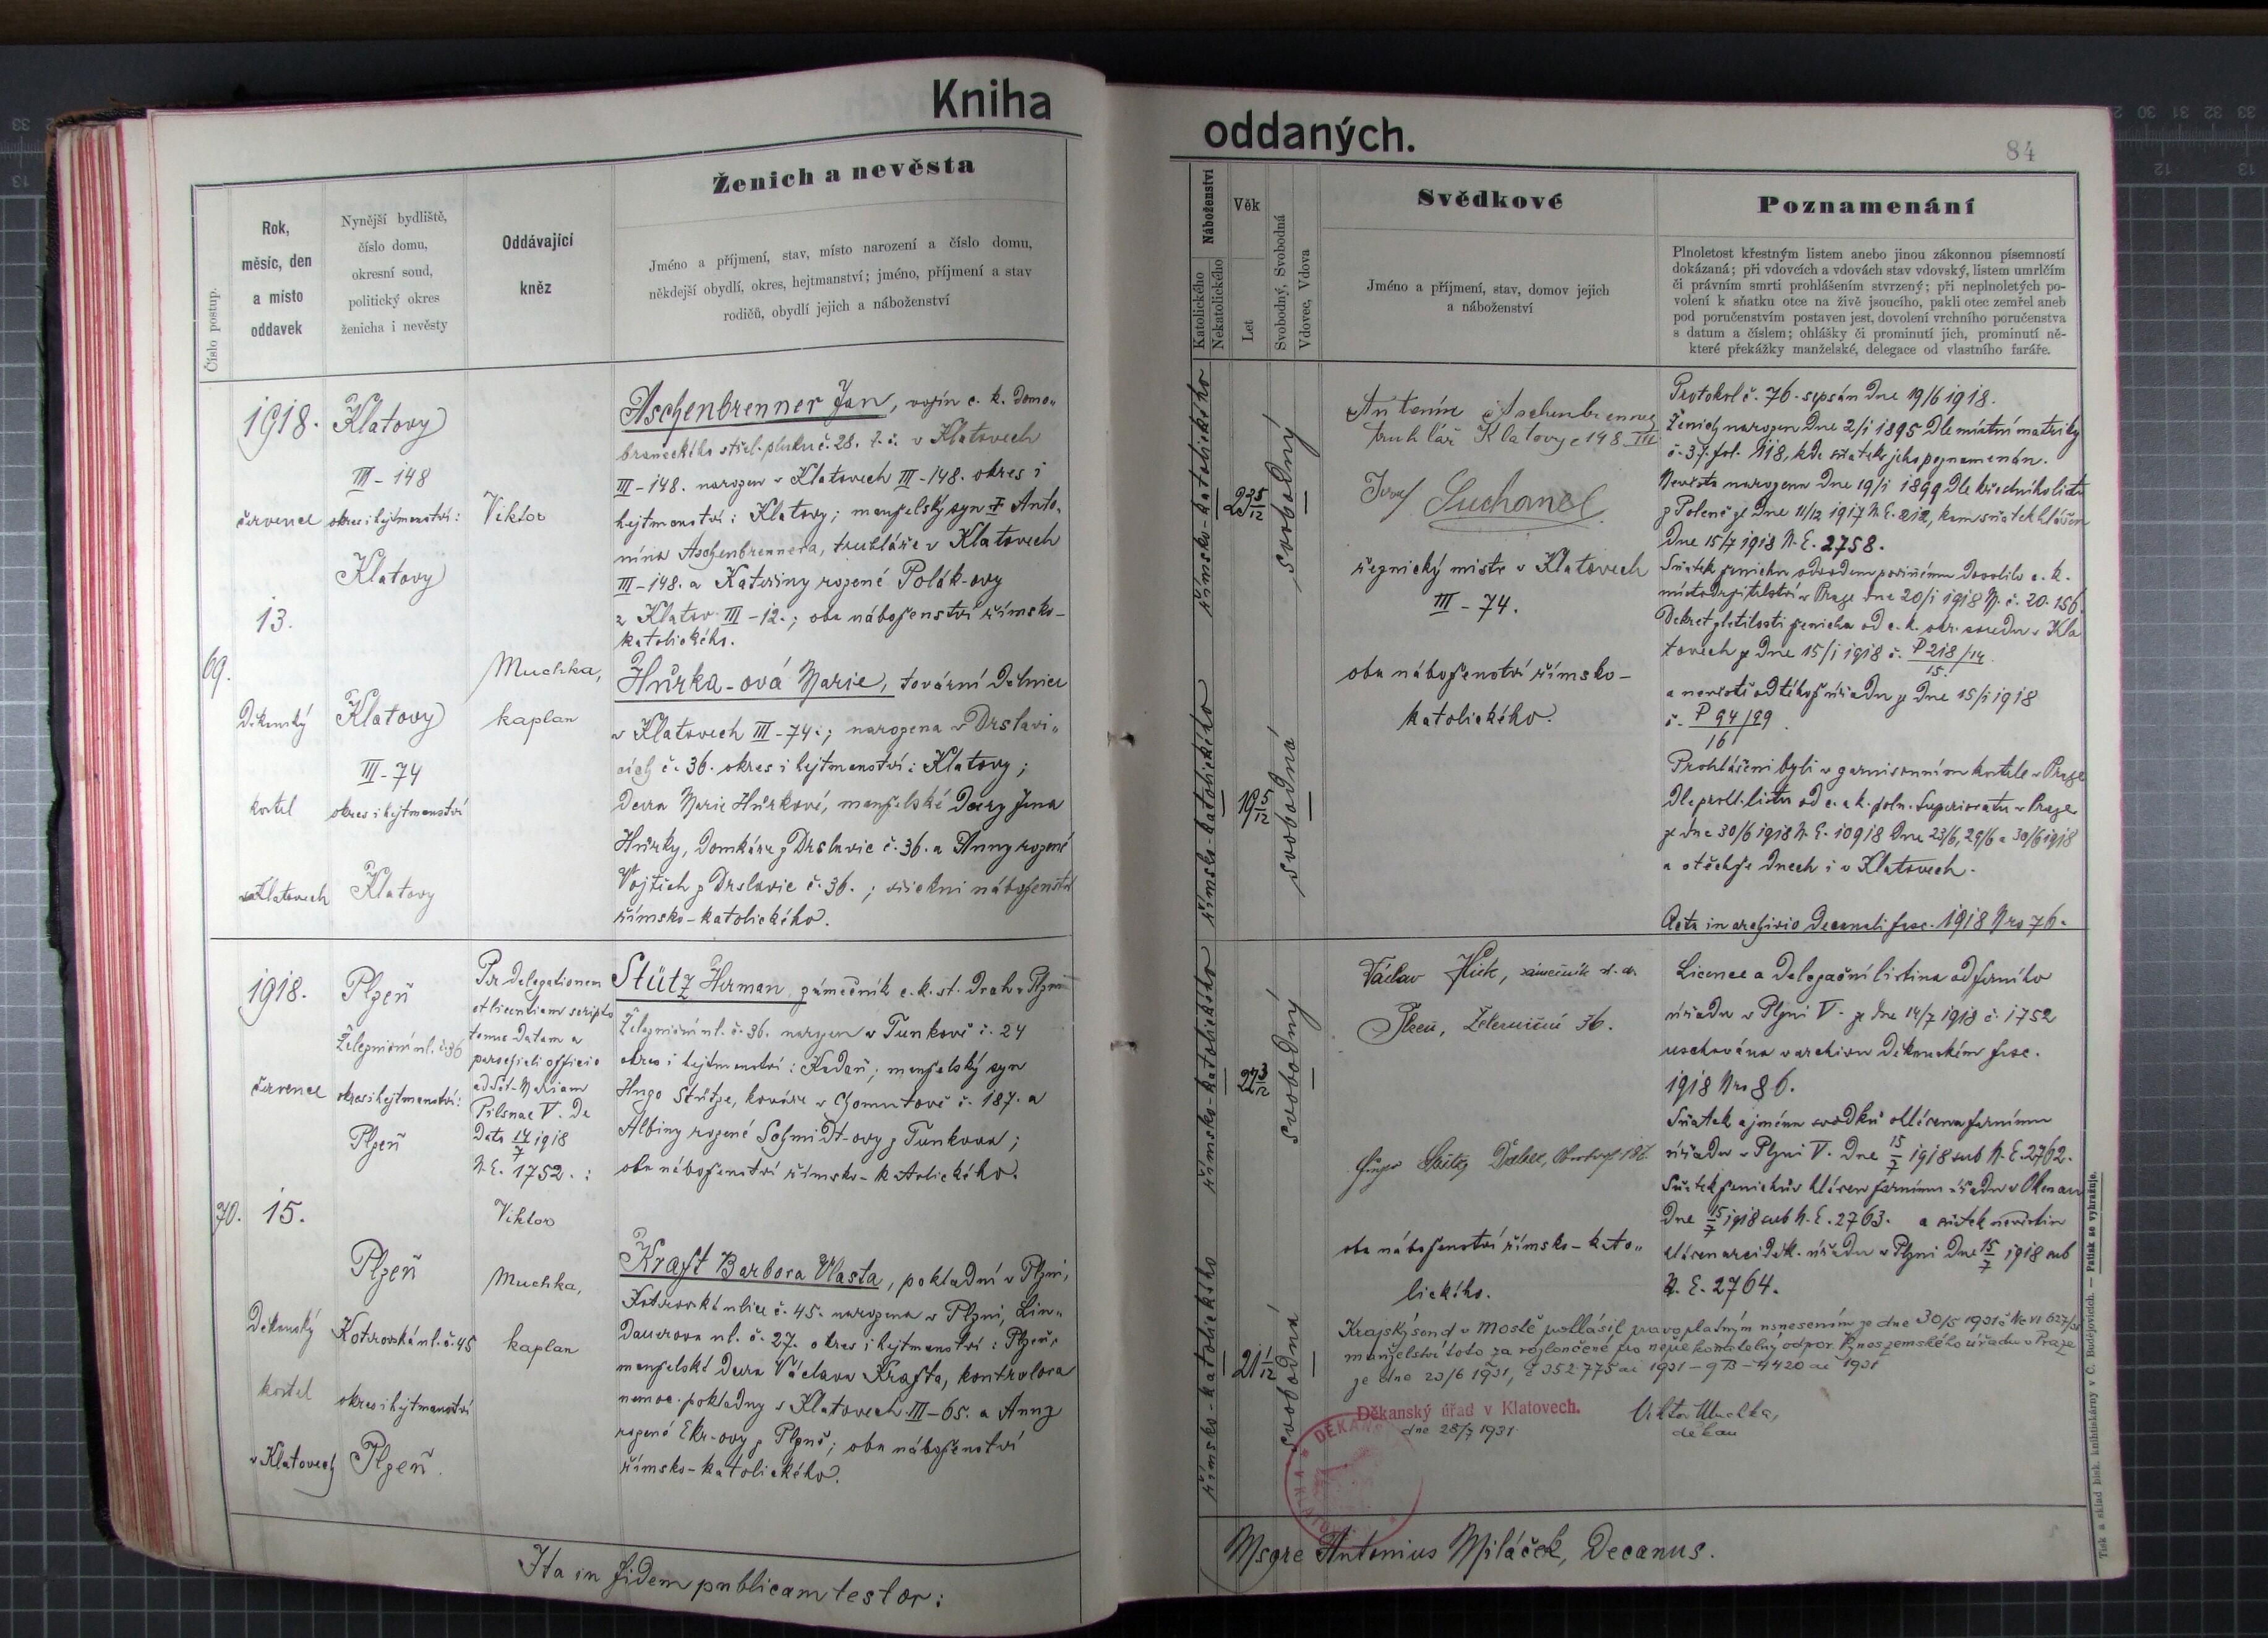 Kniha
oddaných.
84
Číslo postup.
Rok,
měsíc, den
a místo
oddavek
Nynější bydliště,
číslo domu,
okresní soud,
politický okres
ženicha i nevěsty
Oddávající
kněz
Ženich a nevěsta
Jméno a příjmení, stav, místo narození a číslo domu,
někdejší obydlí, okres, hejtmanství; jméno, příjmení a stav
rodičů, obydlí jejich a náboženství
Náboženství
Katolického
Nekatolického
Věk
Let
Svobodný, Svobodná
Vdovec, Vdova
Svědkové
Jméno a příjmení, stav, domov jejich
a náboženství
Poznamenání
Plnoletost křestným listem anebo jinou zákonnou písemností
dokázaná; při vdovcích a vdovách stav vdovský, listem umrlčím
či právním smrti prohlášením stvrzený; při neplnoletých po-
volení k sňatku otce na živě jsoucího, pakli otec zemřel aneb
pod poručenstvím postaven jest, dovolení vrchního poručenstva
s datum a číslem; ohlášky či prominutí jich, prominutí ně-
které překážky manželské, delegace od vlastního faráře.
69.
1918.
července
13.
Děkanský
kostel
v Klatovech
Klatovy
III - 148
okres i hejtmanství:
Klatovy
Klatovy
III - 74
okres i hejtmanství
Klatovy
Viktor
Muchka,
kaplan
Aschenbrenner Jan, vojín c. k. domo„
braneckého střel. pluku č. 28. t. č. v Klatovech
III - 148. narozen v Klatovech III - 148. okres i
hejtmanství: Klatovy; manželský syn † Anto„
nína Aschenbrennera, truhláře v Klatovech
III - 148. a Kateřiny rozené Polák-ovy
z Klatov III - 12.; oba náboženství římsko-
katolického.
Hůrka-ová Marie, tovární dělnice
v Klatovech III - 74.; narozena v Drslavi„
cích č. 36. okres i hejtmanství: Klatovy;
dcera Marie Hůrkové, manželské dcery Jana
Hůrky, domkáře z Drslavic č. 36. a Anny rozené
Vojtích z Drslavic č. 36.; všichni náboženství
římsko-katolického.
římsko-katolického
23 5/12
svobodný
římsko-katolického
19 5/12
svobodná
Antonín Aschenbrenner
truhlář Klatovy č 148 III
Josef Suchanel
řeznický mistr v Klatovech
III - 74.
oba náboženství římsko-
katolického.
Protokol č. 76. sepsán dne 19/6 1918.
Ženich narozen dne 2/1 1895 dle místní matriky
č. 37. fol. 118, kde sňatek jeho poznamenán.
Nevěsta narozena dne 19/1 1899 dle křestního listu
z Poleně ze dne 11/12 1917 N. E. 212, kam sňatek hlášen
dne 15/7 1918 N. E. 2758.
Sňatek ženichu odvodem povinému dovolilo c. k.
místodržitelství v Praze dne 20/1 1918 N. č. 20.156.
Dekret zletilosti ženicha od c. k. okr. soudu v Kla
tovech ze dne 15/1 1918 č. P 218/14
15.
a nevěstě od téhož úřadu ze dne 15/1 1918
č. P 94/99
16
Prohlášeni byli v garnisonním kostele v Praze
dle prohl. listu od c. a k. poln. Superioratu v Praze
ze dne 30/6 1918 N. E. 10918 dne 23/6, 29/6 a 30/6 1918
a v těchže dnech i v Klatovech.
Acta in archivio decanali fasc. 1918 Nro 76.
70.
1918.
července
15.
Děkanský
kostel
v Klatovech
Plzeň
Železniční ul. č. 36
okres i hejtmanství:
Plzeň
Plzeň
Kotrovská ul. č. 45
okres i hejtmanství
Plzeň.
Per delegationem
et licentiam scripto
tenus datam a
parochiali officio
ad Sct. Mariam
Pilsnae V. de
dato 14/7 1918
N. E. 1752.:
Viktor
Muchka,
kaplan
Stütz Herman, zámečník c. k. st. drah v Plzni
Železniční ul. č. 36. narozen v Tunkově č. 24
okres i hejtmanství: Kadaň; manželský syn
Hugo Stütze, kováře v Chomutově č. 187. a
Albiny rozené Schmidt-ovy z Tunkova;
oba náboženství římsko-katolického.
Kraft Barbora Vlasta, pokladní v Plzni,
Kotrovská ulice č. 45. narozena v Plzni, Lin„
dauerova ul. č. 27. okres i hejtmanství: Plzeň;
manželská dcera Václava Krafta, kontrolora
nemoc. pokladny v Klatovech III - 65. a Anny
rozené Ekr-ovy z Plzně; oba náboženství
římsko-katolického.
římsko-katolického
22 3/12
svobodný
římsko-katolického
21 1/12
svobodná
Václav zámečník st. dr.
Plzeň, Železniční 36.
oba náboženství římsko-kato„
lického.
Licence a delegační listina od farního
úřadu v Plzni V. ze dne 14/7 1918 č. 1752
uschována v archivu děkanském fasc.
1918 Nro 86.
Sňatek a jména svědků hlášena farnímu
úřadu v Plzni V. dne 15/7 1918 sub N. E. 2762.
Sňatek ženichův hlášen farnímu úřadu v Okenau
dne 15/7 1918 sub N. E. 2763. a sňatek nevěstin
hlášen arciděk. úřadu v Plzni dne 15/7 1918 sub
N. E. 2764.
Krajský soud v Mostě prohlásil pravoplatným usnesením ze dne 30/5 1931
manželství toto za rozloučené pro nepřekonatelný odpor. Výnos zemského úřadu v Praze
ze dne 23/6 1931, č 352.775 ai 1931 - 9 B - 4420 ai 1931
Děkanský úřad v Klatovech.
dne 28/7 1931.
Viktor Muchka,
děkan
Ita in fidem publicam testor:
Msgre Antonius Miláček, Decanus.
Tisk a sklad bisk. knihtiskárny v Č. Budějovicích. — Patisk se vyhražuje.